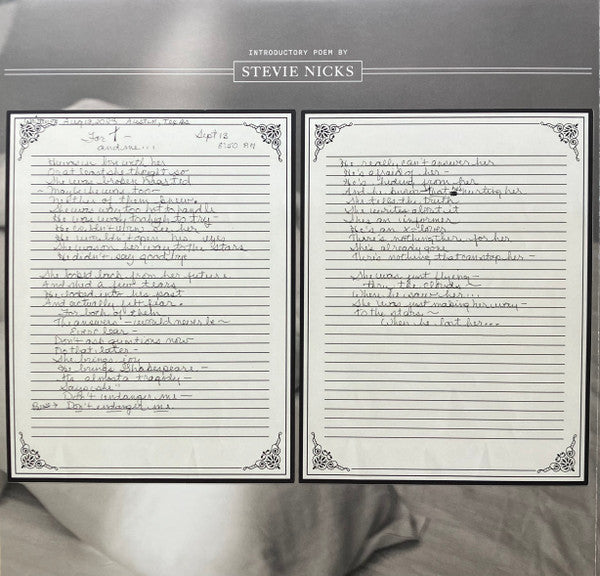 INTRODUCTORY POEM BY
STEVIE NICKS
Aug 13, 2023 Austin, Texas
For T —
and me...
Sept 13
He was in love with her
Or at least she thought so
She was broken hearted
~ Maybe he was too —
Neither of them knew
She was way too hot to handle
He was too high to try —
He couldn't even see her
He wouldn't open his eyes
She was on her way to the stars
He didn't say goodbye
She looked back from her future
And shed a few tears
He looked into his past
And actually felt fear.
For both of them
The answers — would never be ~
Ever clear —
Don't ask questions now
Do that later —
She brings joy
He brings Shakespeare —
It's almost a tragedy —
Says she"
Don't endanger me —
Don't endanger me.
He really can't answer her
He's afraid of her —
He's hiding from her
And he knows that hurting her
She tells the truth
She writes about it
She's an informer
He's an x-lover
There's nothing there for her
She's already gone
There's nothing that can stop her —
She was just flying —
thru the clouds —
When he saw her...
She was just making her way —
to the stars ~
When he lost her...